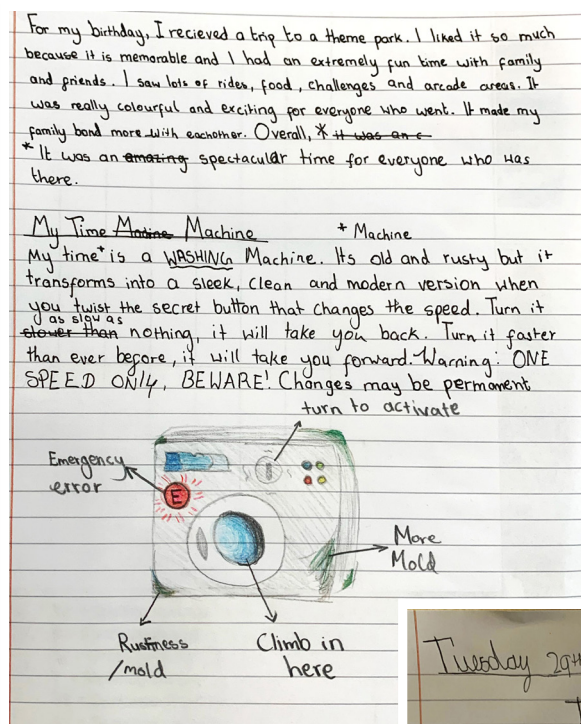 For my birthday, I recieved a trip to a theme park. I liked it so much
because it is memorable and I had an extremely fun time with family
and friends. I saw lots of rides, food, challenges and arcade areas. It
was really colourful and exciting for everyone who went. It made my
family bond more with eachother. Overall, * it was an
* It was an amazing spectacular time for everyone who was
there.
My Time Machine
* Machine
My time* is a WASHING Machine. Its old and rusty but it
transforms into a sleek, clean and modern version when
you twist the secret button that changes the speed. Turn it
as slow as
slower than nothing, it will take you back. Turn it faster
than ever before, it will take you forward. Warning: ONE
SPEED ONLY, BEWARE! Changes may be permanent
turn to activate
Emergency
error
E
More
Mold
Rustiness
/mold
Climb in
here
Tuesday 29th